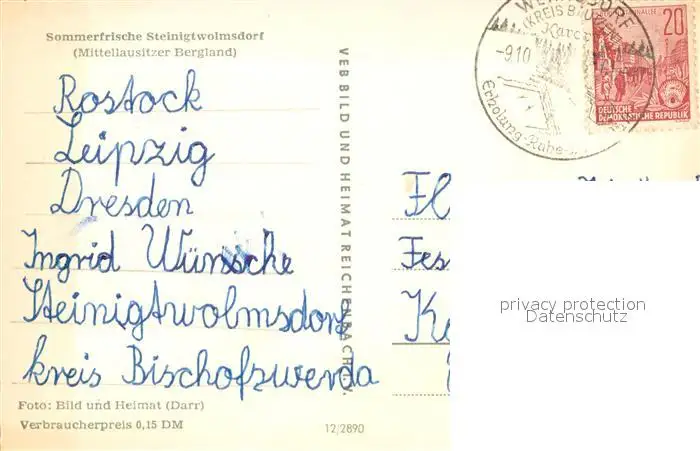 Sommerfrische Steinigtwolmsdorf
(Mittellausitzer Bergland)
Rostock
Leipzig
Dresden
Ingrid Wünsche
Steinigtwolmsdorf
kreis Bischofswerda
Foto: Bild und Heimat (Darr)
Verbraucherpreis 0,15 DM
12/2890
VEB BILD UND HEIMAT REICHENBACH
(KREIS BAUTZEN)
-9.10
Erholung-Ruhe
20
DEUTSCHE
DEMOKRATISCHE REPUBLIK
Fl
Fes
privacy protection
Datenschutz